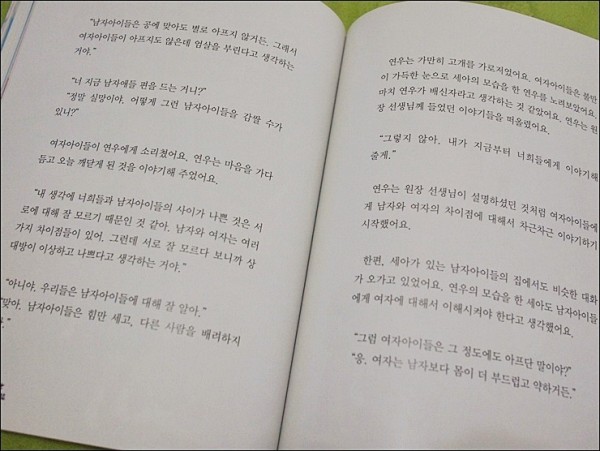 "남자아이들은 공에 맞아도 별로 아프지 않거든. 그래서
여자아이들이 아프지도 않은데 엄살을 부린다고 생각하는
거야."
"너 지금 남자애들 편을 드는 거니?"
"정말 실망이야. 어떻게 그런 남자아이들을 감쌀 수가
있니?"
여자아이들이 연우에게 소리쳤어요. 연우는 마음을 가다
듬고 오늘 깨닫게 된 것을 이야기해 주었어요.
"내 생각에 너희들과 남자아이들의 사이가 나쁜 것은 서
로에 대해 잘 모르기 때문인 것 같아. 남자와 여자는 여러
가지 차이점들이 있어. 그런데 서로 잘 모르다 보니까 상
대방이 이상하고 나쁘다고 생각하는 거야."
"아니야. 우리들은 남자아이들에 대해 잘 알아."
맞아. 남자아이들은 힘만 세고, 다른 사람을 배려하지
연우는 가만히 고개를 가로저었어요. 여자아이들은 불만
이 가득한 눈으로 세아의 모습을 한 연우를 노려보았어요.
마치 연우가 배신자라고 생각하는 것 같았어요. 연우는 원
장 선생님께 들었던 이야기들을 떠올렸어요.
"그렇지 않아. 내가 지금부터 너희들에게 이야기해
줄게."
연우는 원장 선생님이 설명하셨던 것처럼 여자아이들에
게 남자와 여자의 차이점에 대해서 차근차근 이야기하기
시작했어요.
한편, 세아가 있는 남자아이들의 집에서도 비슷한 대화
가 오가고 있었어요. 연우의 모습을 한 세아도 남자아이들
에게 여자에 대해서 이해시켜야 한다고 생각했어요.
"그럼 여자아이들은 그 정도에도 아프단 말이야?"
"응. 여자는 남자보다 몸이 더 부드럽고 약하거든."